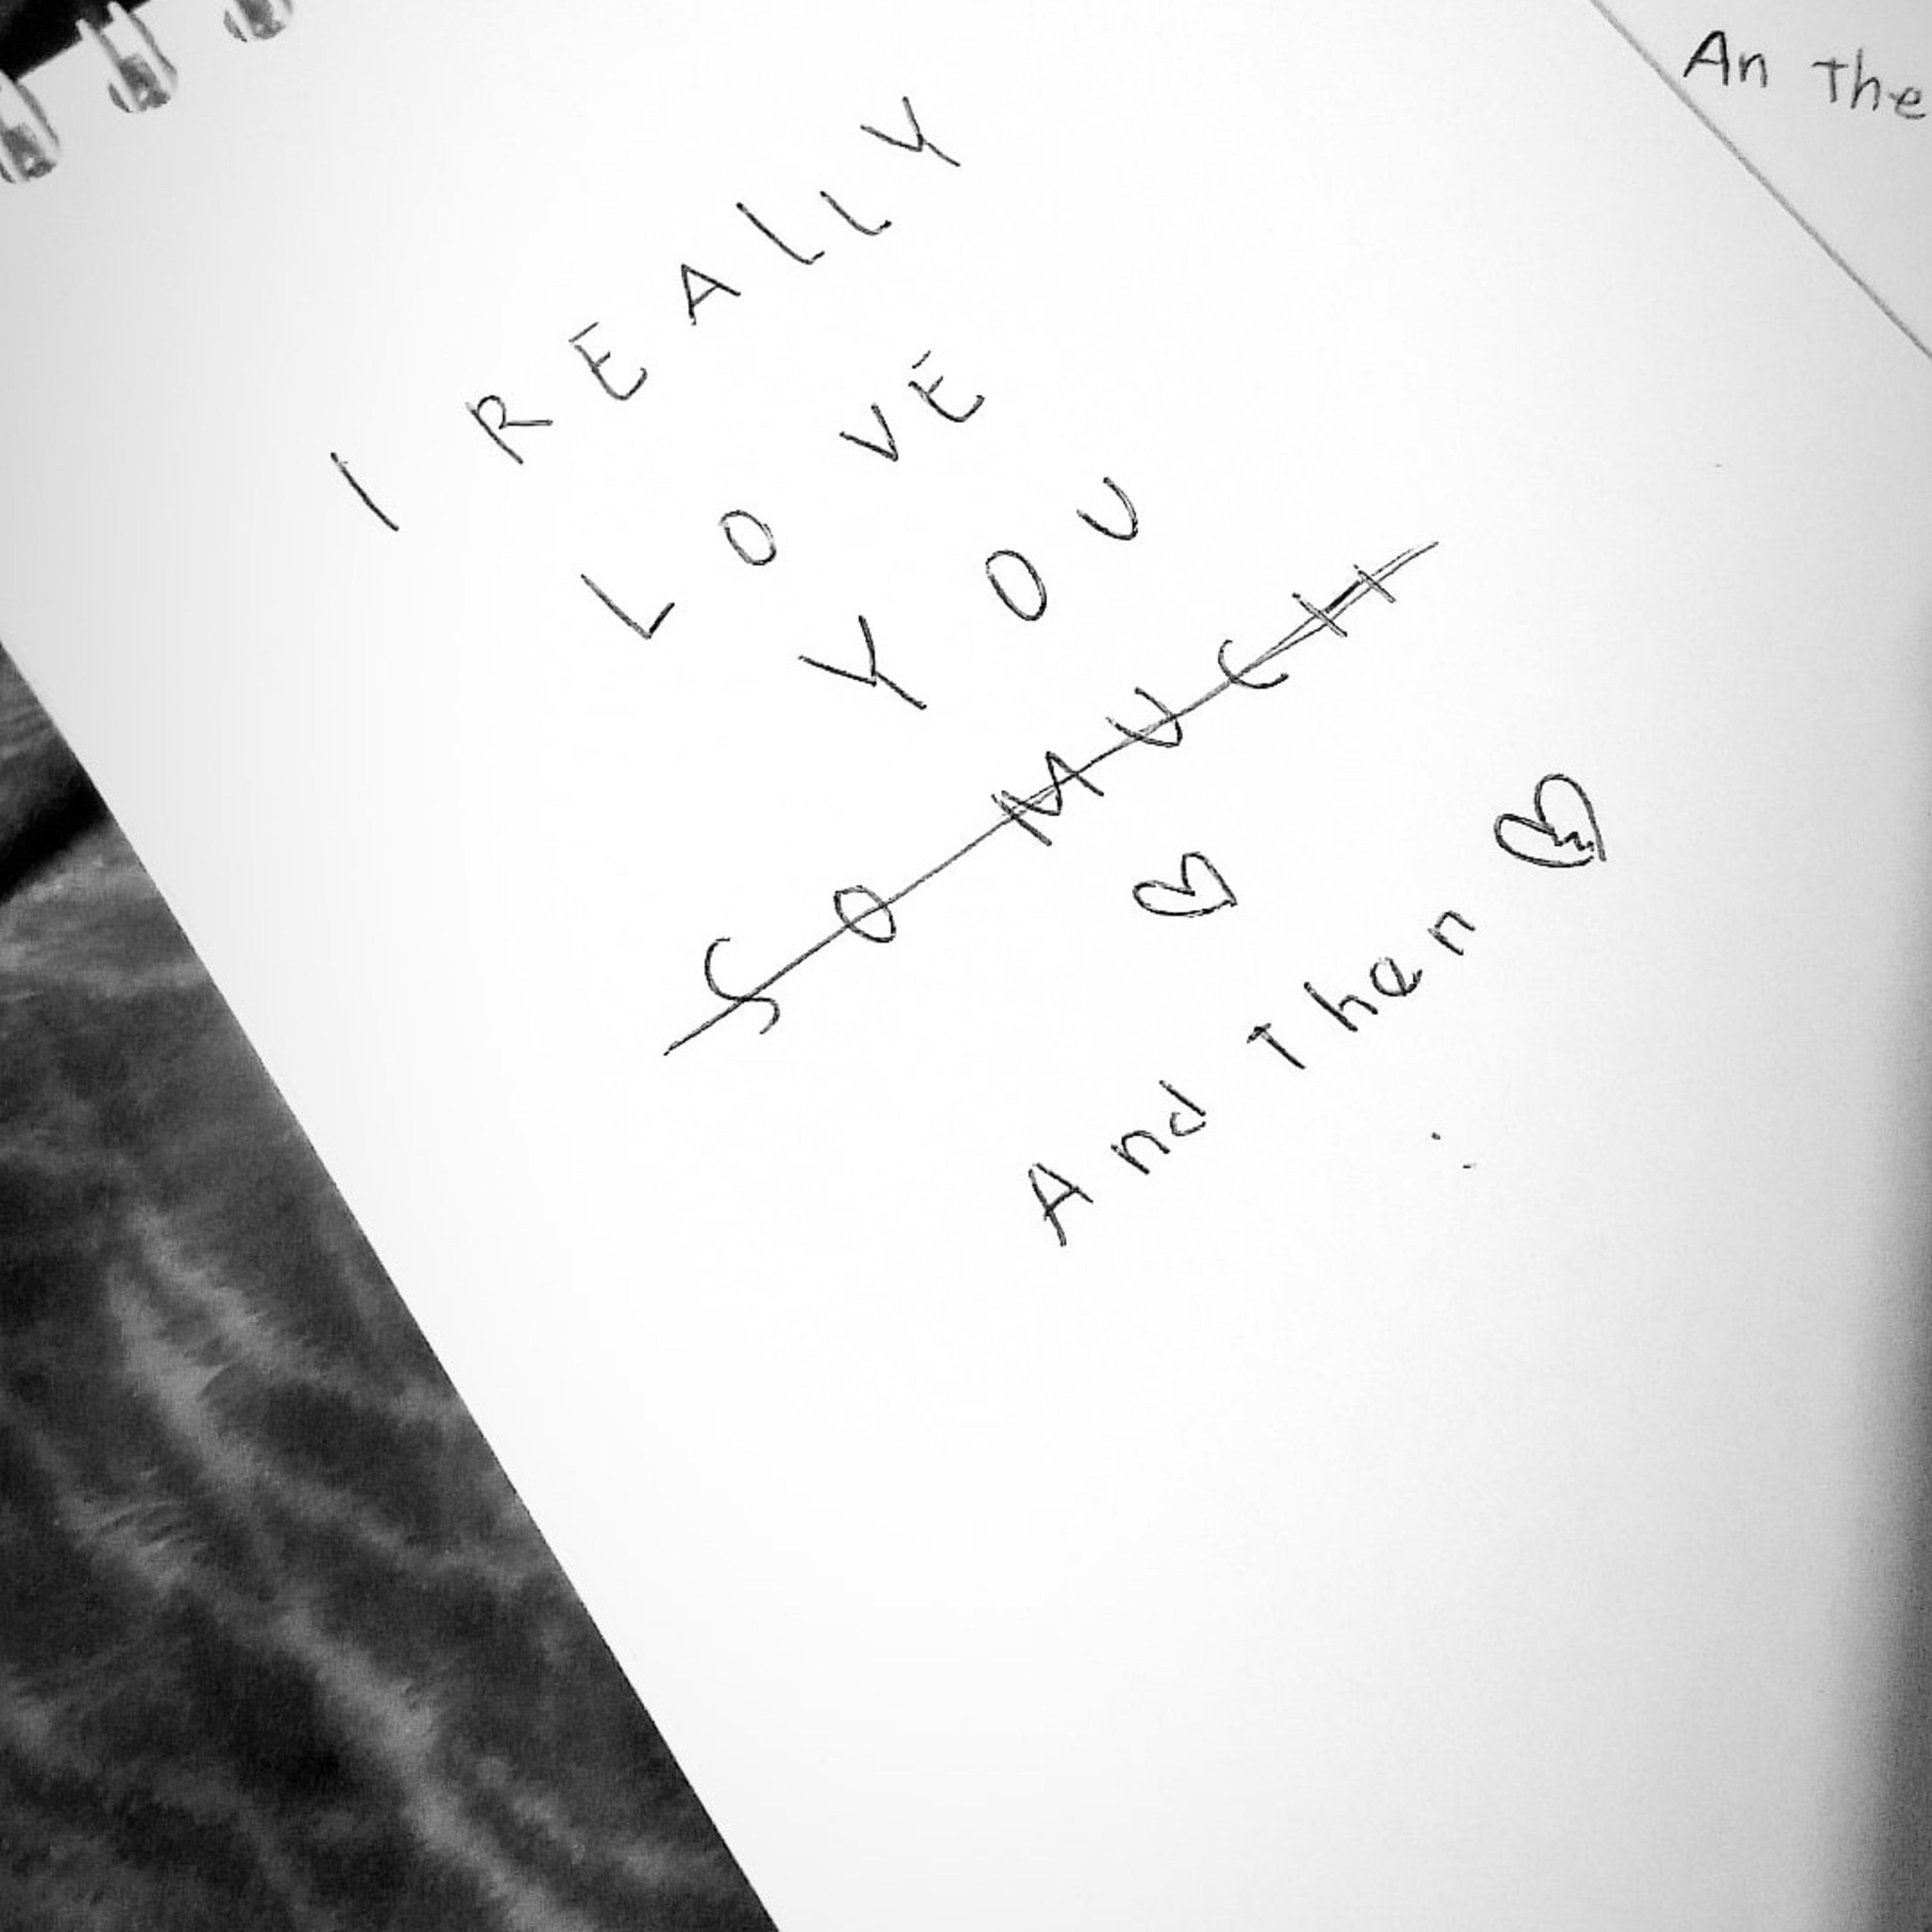 I REALLY
LOVE
YOU
SO MUCH
And Then
An The